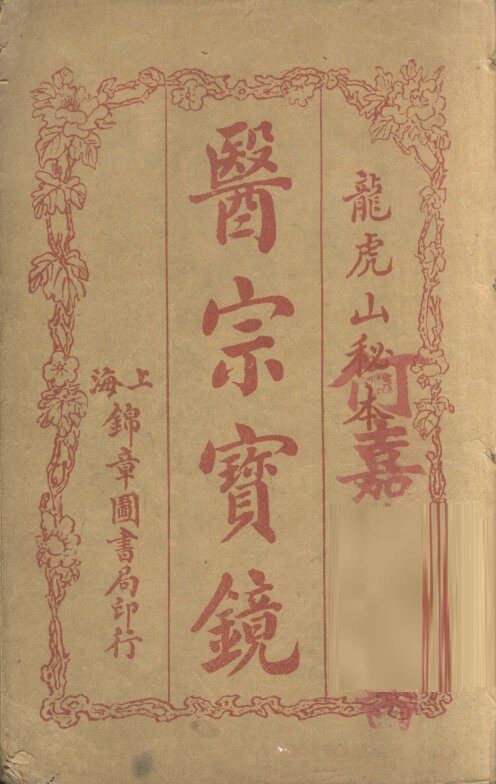 龍虎山秘本
何嘉
醫宗寶鏡
上海
錦章圖書局印行